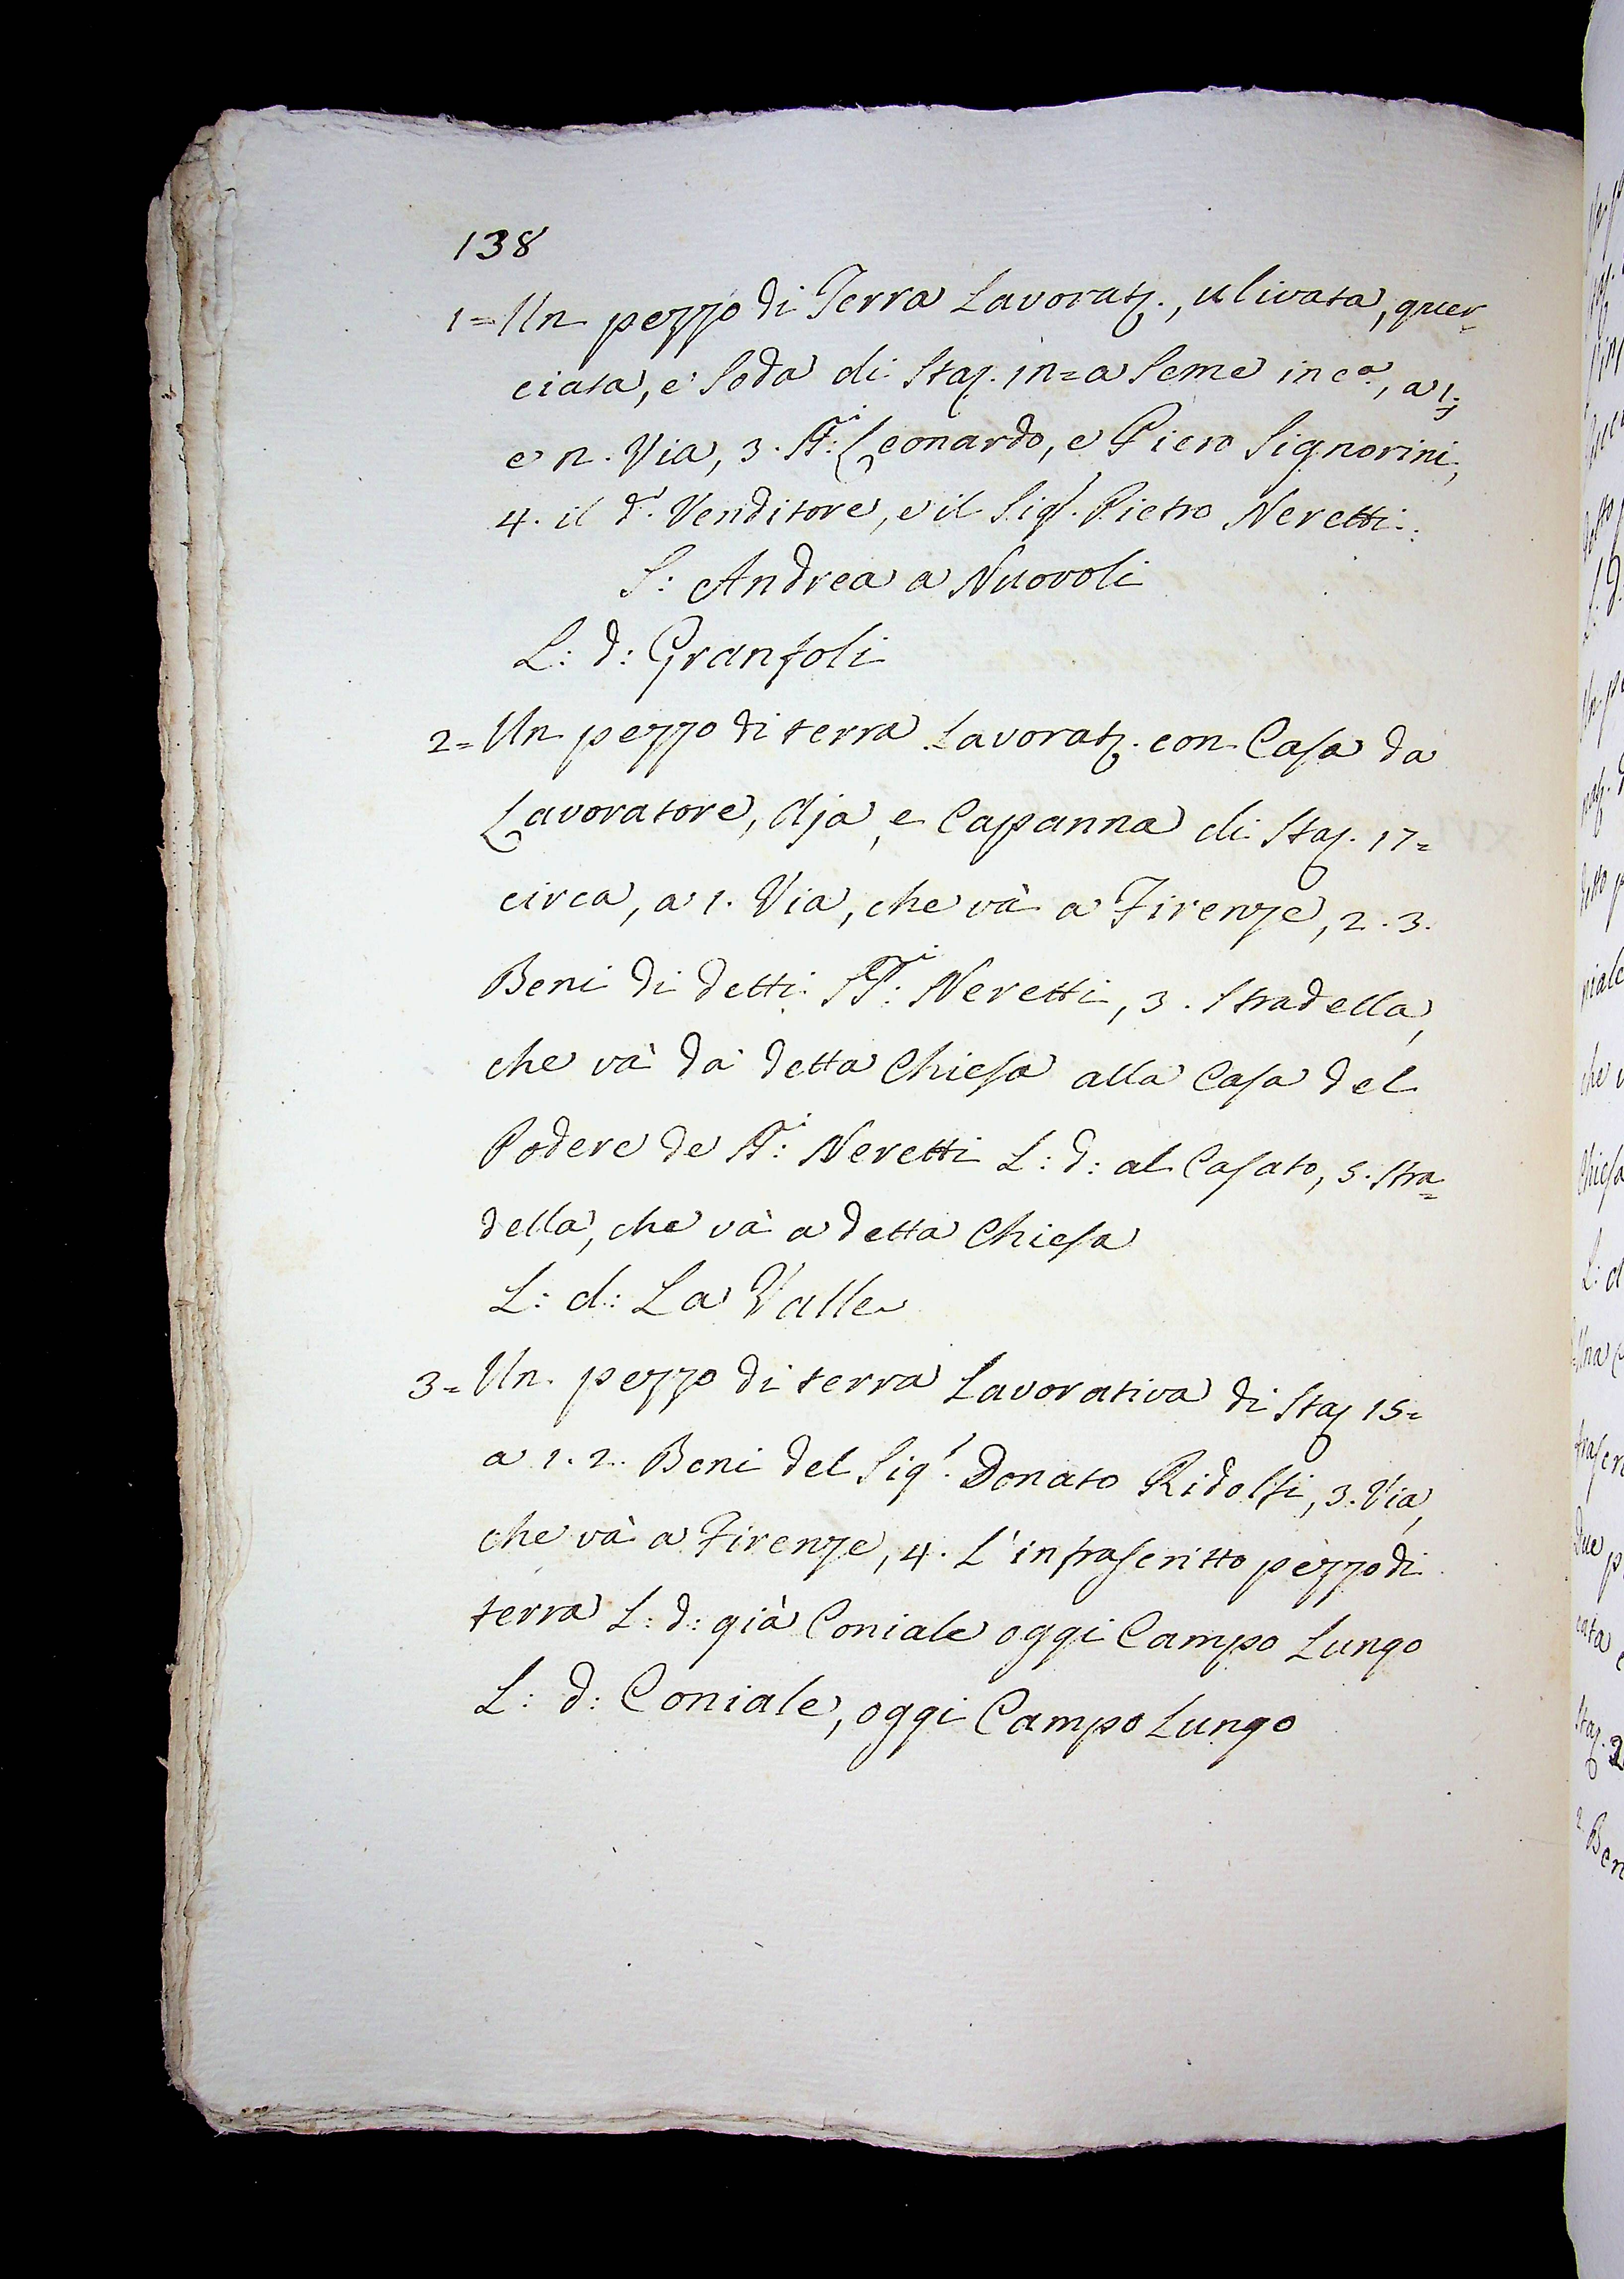 138
1= Un pezzo di Terra Lavoratᵃ., ulivata, quer-
ciata, e soda di Staj. in=a Seme in cᵃ., a 1.
e n. Via, 3. FF:ⁱ Leonardo, e Piero Signorini,
4. il dᵒ. Venditore, e il Sigʳ. Pietro Neretti.
S: Andrea a Nuovoli
L: d: Granzoli
2= Un pezzo di terra Lavoratᵃ. con Casa da
Lavoratore, Aja, e Capanna di Staj. 17=
circa, a 1. Via, che và a Firenze, 2. 3.
Beni di detti FF:ⁱ Neretti, 3. Stradella,
che và da detta Chiesa alla Casa del
Podere de FF:ⁱ Neretti L: d: al Casato, 5. Stra=
della, che và a detta Chiesa
L: d: La Valle
3= Un pezzo di terra Lavorativa di Staj 15=
a 1. 2. Beni del Sigʳ. Donato Ridolfi, 3. Via,
che và a Firenze, 4. L'infrascritto pezzo di
terra L: d: già Coniale oggi Campo Lungo
L: d: Coniale, oggi Campo Lungo